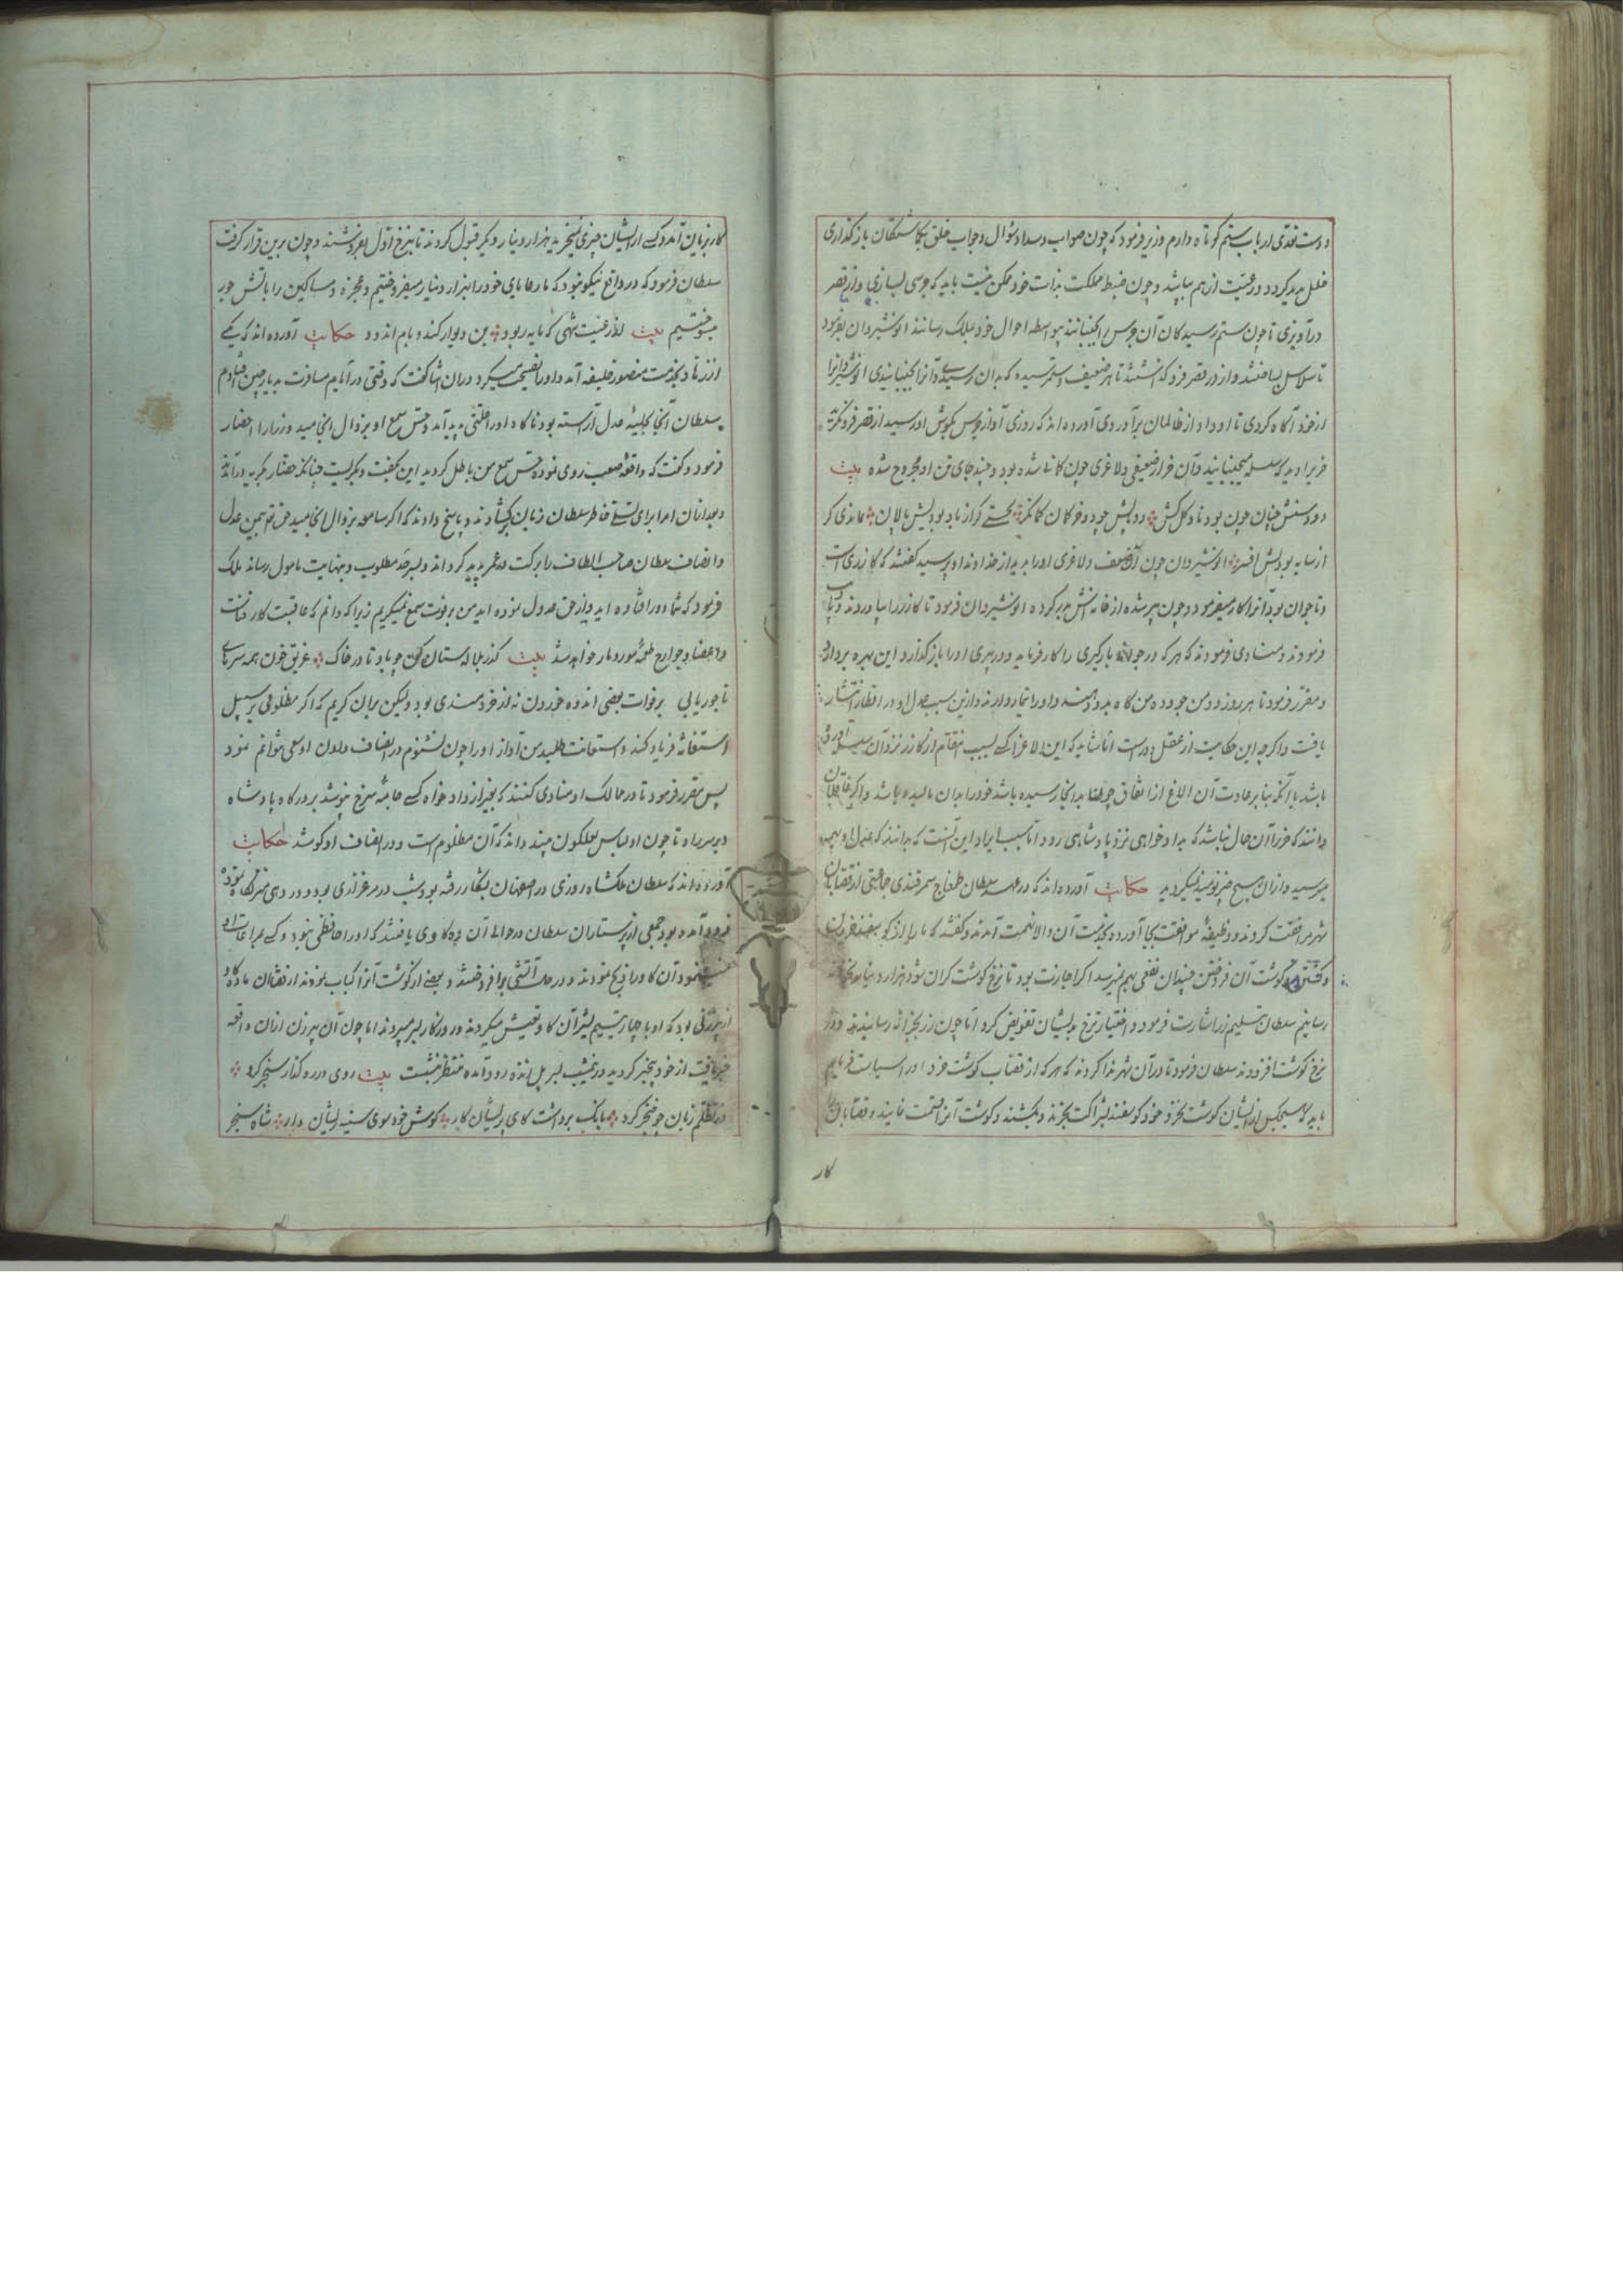 و دست تعدّی ارباب ستم کوتاه دارم وزیر فرمود که چون صواب و سداد سؤال و جواب خلق بگماشتگان باز گذاری
خلل پدید گردد و رعیّت از هم بپاشد و چون ضبط مملکت بذات خود ممکن نیست باید که جرسی بسازی و از قصر
درآویزی تا چون ستم رسیدگان آن جرس را بجنبانند بیواسطه احوال خود بملک رسانند انوشیروان بفرمود
تا سلاسل بساختند و از در قصر فرو گذاشتند تا هر ضعیف و ستمرسیده که بدان رسیدی و آنرا بجنبانیدی انوشیروانرا
از خود آگاه کردی تا او داد از ظالمان برآوردی آورده‌اند که روزی آواز جرس بگوش او رسید از قصر فرو نگریست
خریرا دید که سلسله میجنبانید و آن خر از ضعیفی و لاغری چون کمانی شده بود و چند جای تن او مجروح شده بیت
از سایه بودیش افسر انوشیروان چون آن ضعف و لاغری او را بدید از خداوند او پرسید گفتند که گازری است
و تا جوان بود آنرا کار میفرمود و چون پیر شده از خانه‌اش بدر کرده انوشیروان فرمود تا گازر را بیاوردند و
فرمودند و منادی فرمودند که هر که در جوانی بارگیری را کار فرماید و در پیری او را باز گذارد این بهره بردارد
و مقرّر فرمود تا هر روز دو من جو و ده من کاه بدو دهند و او را تیمار دارند و ازین سبب عدل او در اقطار انتشار
یافت و اگرچه این حکایت از عقل دور است امّا شاید که این لاغر که بسبب انتقام از گازر نزد آن سلسله رفته
باشد یا آنکه بنا بر عادت آن الاغ از اتفاق چون بدانجا رسیده باشد خود را بدان مالیده باشد و اگر عاقلان
دانند که خر را آن حال نباشد که بداد خواهی نزد پادشاهی رود امّا سبب ایراد این آنست که بدانند که عدل او بهمه
میرسید و از آن هیچ چیز نومید نمیگردید حکایت آورده‌اند که در عهد سلطان طمغاج سمرقندی جماعتی از قصّابان
شهر مرافقت کردند و وظیفهٔ موافقت بجا آورده بخدمت آن والا نهمت آمدند و گفتند که ما را از گوسفند خریدن
و کشتن و گوشت آن فروختن چندان نفعی بهم نمیرسد اگر اجازت بود تا نرخ گوشت گران شود هزار دینار بخزانه
رسانیم سلطان بتسلیم زر اشارت فرمود و اختیار نرخ بدیشان تفویض کرد امّا چون زر بخزانه رسانیدند و در
نرخ گوشت افزودند سلطان فرمود تا در آن شهر ندا کردند که هر که از قصّاب گوشت خرد او را سیاست فرمایم
باید که هیچکس از ایشان گوشت نخرد و خود گوسفند بشراکت بخرند و بکشند و گوشت آنرا قسمت نمایند و قصّابان را
کار
کار بزیان آمد و کسی از ایشان چیزی نمیخرید هزار دینار دیگر قبول کردند تا بنرخ اوّل بفروشند و چون برین قرار گرفت
سلطان فرمود که در واقع نیکو نبود که ما رعایای خود را بهزار دینار میفروختیم و عجزه و مساکین را بآتش جور
میسوختیم بیت از رعیّت شهی که مایه ربود بن دیوار کند و بام اندود حکایت آورده‌اند که یکی
از زهّاد بخدمت منصور خلیفه آمد و او را نصیحت میکرد در آن اثنا گفت که وقتی در ایام مسافرت بدیار چین افتادم
سلطان آنجا بحلیهٔ عدل آراسته بود ناگاه او را علّتی پدید آمد و حسّ سمع او بزوال انجامید وزرا را احضار
فرمود و گفت که واقعهٔ صعب روی نموده حسّ سمع من باطل گردید این بگفت و بگریست چنانکه حضّار بگریه درآمدند
و بعد از آن امرا برای تسلّی خاطر سلطان زبان برگشادند و پاسخ دادند که اگر سامعه بزوال انجامید حق تعالی بیمن عدل
و انصاف سلطان صاحب الطاف را برکت در عمر پدید گرداند و بسرحد مطلوب و بنهایت مامول رساند ملک
فرمود که شما دور افتاده‌اید و از حق عدول نموده‌اید من بر فوت سمع نمیگریم زیرا که دانم که عاقبت کار
و اعضا و جوارح طعمهٔ مور و مار خواهد شد بیت
بر فوات بعضی اندوه خوردن نه از خردمندی بود و لیکن بر آن گریم که اگر مظلومی بر سبیل
استغاثه فریاد کند و استعانت طلبد من آواز او را چون نشنوم در انصاف دادن او سعی نتوانم نمود
پس مقرر فرمود تا در ممالک او منادی کنند که بغیر از داد خواه کسی جامهٔ سرخ نپوشد بر درگاه پادشاه
و بر سر راه تا چون او لباس لعلگون بیند داند که آن مظلوم است و در انصاف او کوشد حکایت
آورده‌اند که سلطان ملکشاه روزی در اصفهان بشکار رفته بود شب در مرغزاری بود و در دهی منزل نموده
فرود آمده بود جمعی از پرستاران سلطان در حوالی آن ده گاوی یافتند که او را حافظی نبود و کسی مراعات او
نمینمود آن گاو را ذبح نمودند و در محل آتشی برافروختند و بعضی از گوشت آنرا کباب نمودند از قضا آن ماده گاو
از پیرزنی بود که او با چهار یتیم بشیر آن گاو تعیش میکردند و روزگار بسر میبردند اما چون آن پیرزن از آن واقعه
خبر یافت از خود بیخبر گردید و نیمشب بر سر پل زنده رود آمده منتظر نشست بیت روی در ره گذار سنجر کرد
در تظلّم زبان چو خنجر کرد بانگ برداشت کای پریشان کار گوش خود سوی سینه ریشان دار شاه سنجر